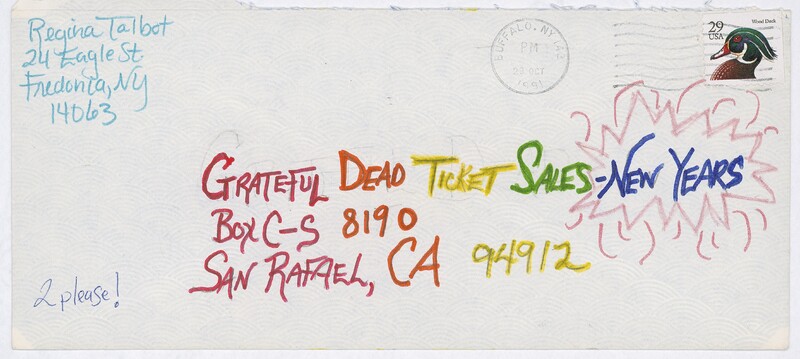 Regina Talbot
24 Eagle St.
Fredonia, NY
14063
BUFFALO, NY
PM
23 OCT
1991
29
USA
Wood Duck
GRATEFUL DEAD TICKET SALES-NEW YEARS
BOX C-S 8190
SAN RAFAEL, CA 94912
2 please!